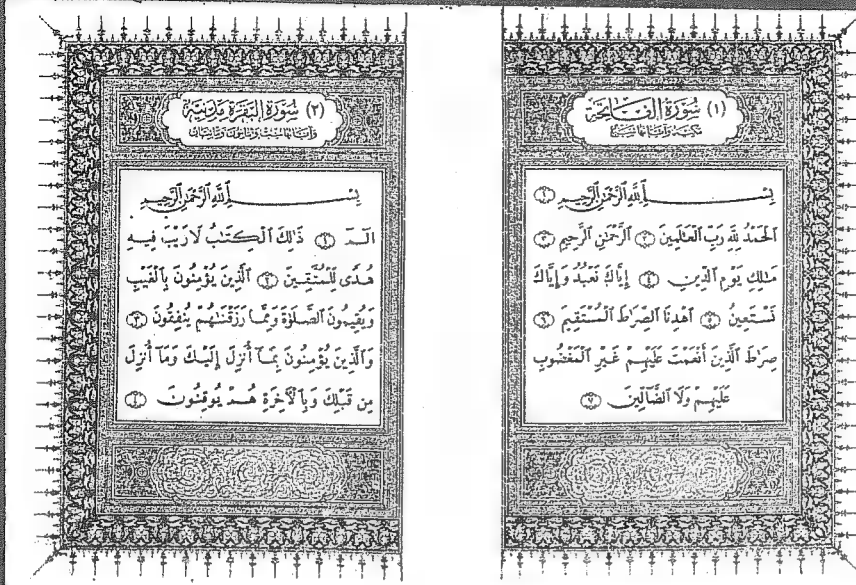 (١) سُورَةُ الفَاتِحَةِ
مكيّة وآياتها سَبْع
بِسْمِ اللَّهِ الرَّحْمَٰنِ الرَّحِيمِ ١
الْحَمْدُ لِلَّهِ رَبِّ الْعَالَمِينَ ٢ الرَّحْمَٰنِ الرَّحِيمِ ٣
مَالِكِ يَوْمِ الدِّينِ ٤ إِيَّاكَ نَعْبُدُ وَإِيَّاكَ
نَسْتَعِينُ ٥ اهْدِنَا الصِّرَاطَ الْمُسْتَقِيمَ ٦
صِرَاطَ الَّذِينَ أَنْعَمْتَ عَلَيْهِمْ غَيْرِ الْمَغْضُوبِ
عَلَيْهِمْ وَلَا الضَّالِّينَ ٧
(٢) سُورَةُ البَقَرَةِ مَدَنِيَّة
بِسْمِ اللَّهِ الرَّحْمَٰنِ الرَّحِيمِ
الٓمٓ ١ ذَٰلِكَ الْكِتَابُ لَا رَيْبَ فِيهِ
هُدًى لِّلْمُتَّقِينَ ٢ الَّذِينَ يُؤْمِنُونَ بِالْغَيْبِ
وَيُقِيمُونَ الصَّلَوٰةَ وَمِمَّا رَزَقْنَاهُمْ يُنفِقُونَ ٣
وَالَّذِينَ يُؤْمِنُونَ بِمَآ أُنزِلَ إِلَيْكَ وَمَآ أُنزِلَ
مِن قَبْلِكَ وَبِالْآخِرَةِ هُمْ يُوقِنُونَ ٤